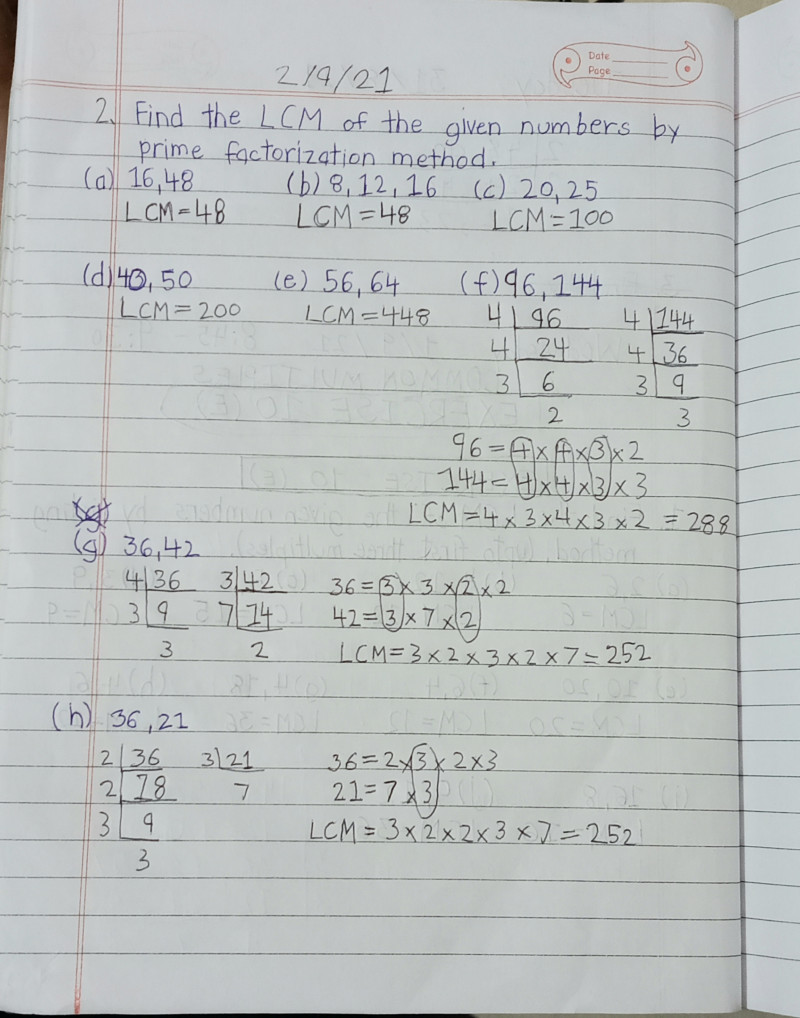 Date
Page
2/9/21
2. Find the LCM of the given numbers by
prime factorization method.
(a) 16,48 (b) 8,12,16 (c) 20,25
LCM=48 LCM=48 LCM=100
(d) 40,50 (e) 56,64 (f) 96,144
LCM=200 LCM=448 4 | 96 4 | 144
4 | 24 4 | 36
3 | 6 3 | 9
2 3
96=4×4×3×2
144=4×4×3×3
LCM=4×3×4×3×2=288
(g) 36,42
4 | 36 3 | 42 36=3×3×2×2
3 | 9 7 | 14 42=3×7×2
3 2 LCM=3×2×3×2×7=252
(h) 36,21
2 | 36 3 | 21 36=2×3×2×3
2 | 18 7 21=7×3
3 | 9 LCM=3×2×2×3×7=252
3